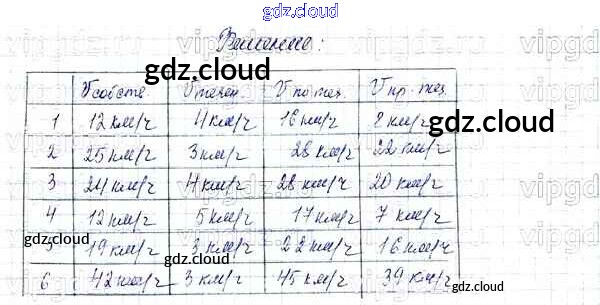 gdz.cloud
Решение:
vipgdz
gdz.cloud
V собств. V течен. V по теч. V пр. теч.
1 12 км/ч 4 км/ч 16 км/ч 8 км/ч
gdz.cloud
2 25 км/ч 3 км/ч 28 км/ч 22 км/ч
3 24 км/ч 4 км/ч 28 км/ч 20 км/ч
4 12 км/ч 5 км/ч 17 км/ч 7 км/ч
gdz.cloud
5 19 км/ч 3 км/ч 22 км/ч 16 км/ч
6 42 км/ч 3 км/ч 45 км/ч 39 км/ч
gdz.cloud
gdz.cloud